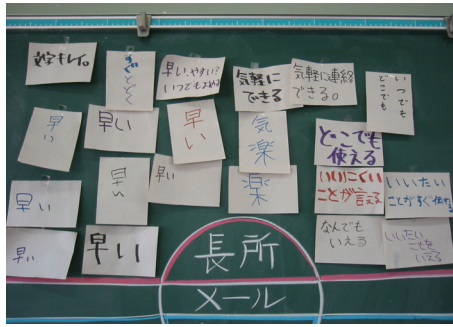 文字キレイ。
すぐとどく
早い、やすい？
いつでもよめる
気軽に
できる
気軽に連絡
できる。
いつでも
どこでも
早い
早い
早い
気
楽
どこでも
使える
早い
早い
早い
楽
いいにくい
ことが言える
いいたい
ことがすぐ
早い
早い
なんでも
いえる
いいたい
ことを
いえる
長所
メール